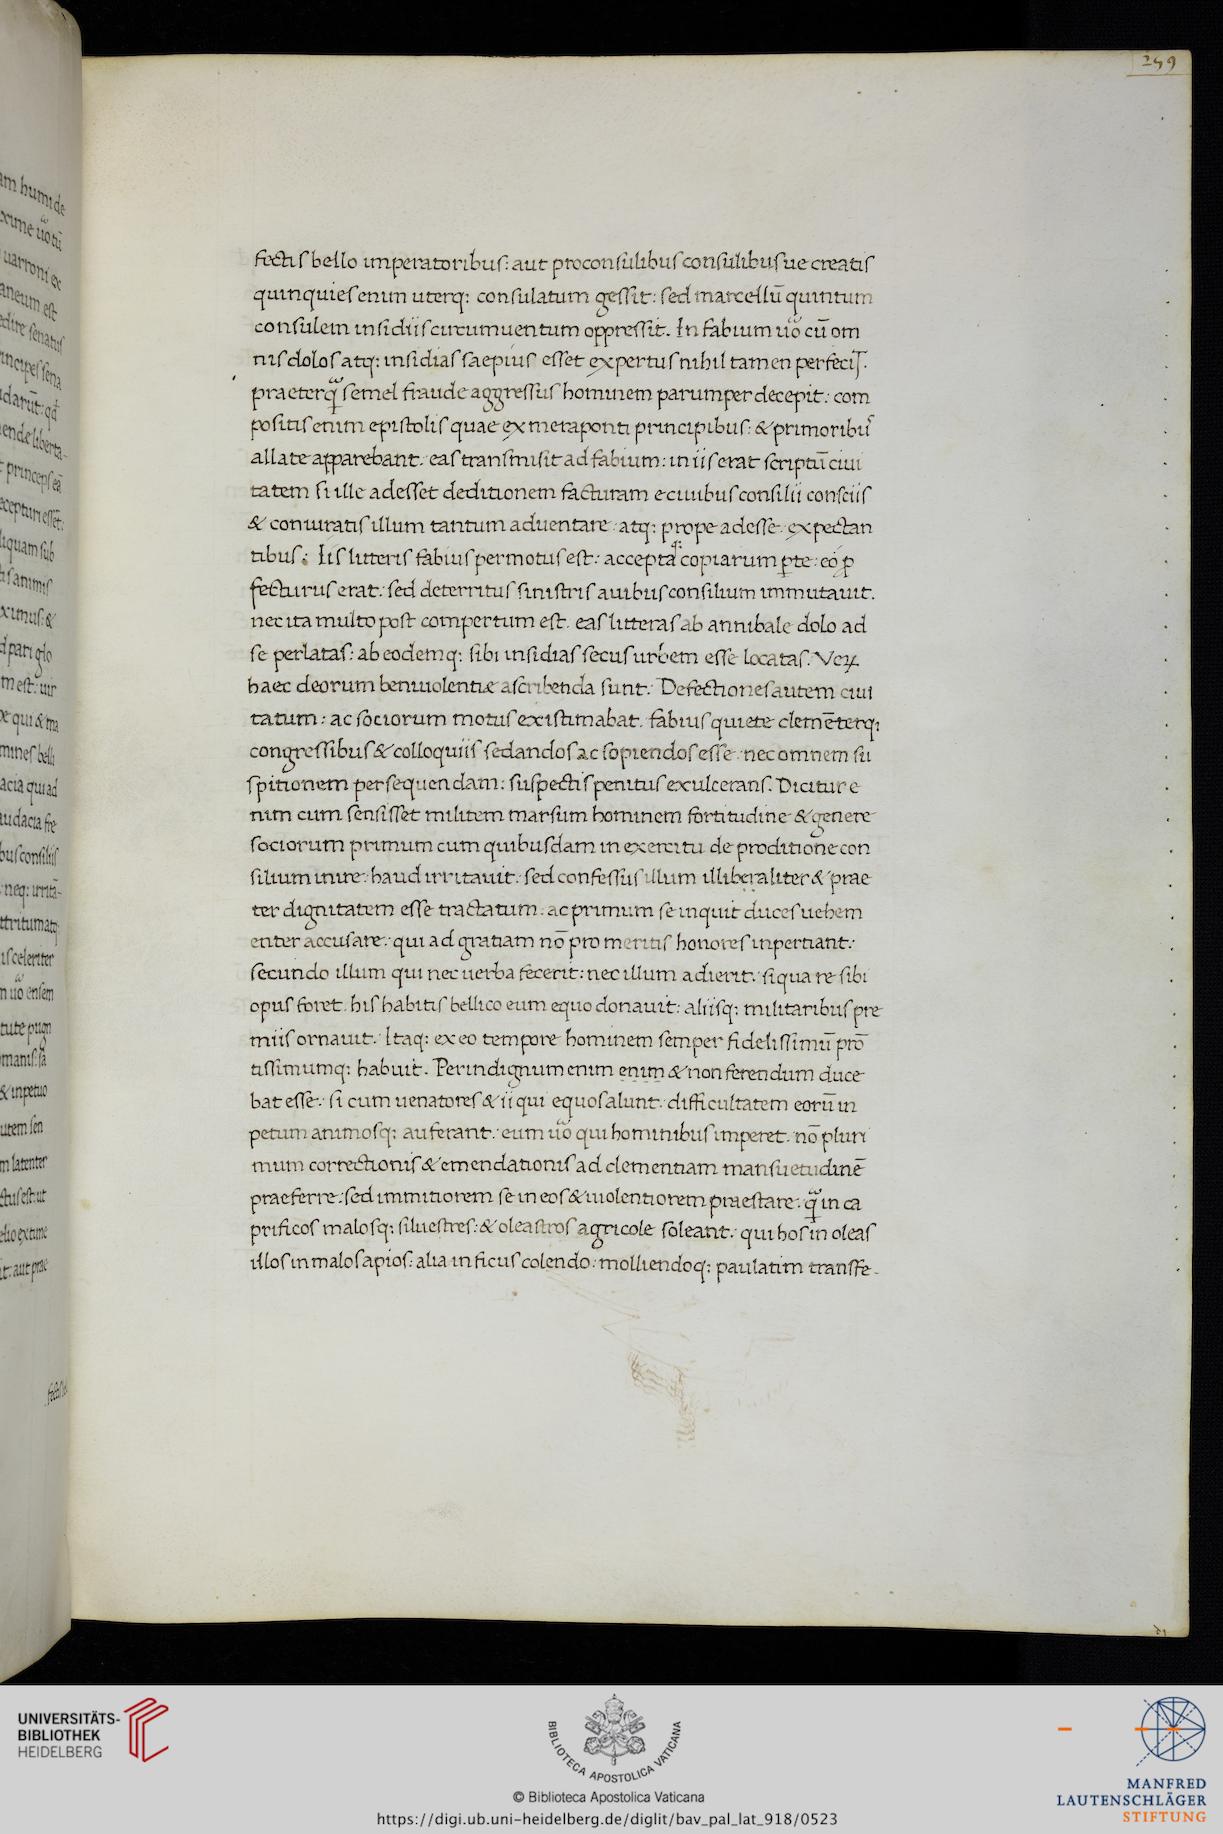 259
fectis bello imperatoribus: aut proconsulibus consulibusue creatis
quinquies enim uterq; consulatum gessit: sed marcellū quintum
consulem insidiis circumuentum oppressit. In fabium uͦo cū om
nis dolos atq; insidias saepius esset expertus nihil tamen perfecit.
praeterq̄ semel fraude aggressus hominem parumper decepit: com
positis enim epistolis quae ex metaponti principibus: & primoribus
allate apparebant. eas transmisit ad fabium: in iis erat scriptū ciui
tatem si ille adesset deditionem facturam e ciuibus consilii consciis
& coniuratis illum tantum aduentare: atq; prope adesse expectan
tibus: Iis litteris fabius permotus est: acceptaq; copiarum ꝑte eo ꝓ
fecturus erat: sed deterritus sinistris auibus consilium immutauit.
nec ita multo post compertum est. eas litteras ab annibale dolo ad
se perlatas: ab eodemq; sibi insidias secus urbem esse locatas. Veꝝ
haec deorum beniuolentiæ ascribenda sunt. Defectiones autem ciui
tatum: ac sociorum motus existimabat fabius quiete clemēterq;
congressibus & colloquiis sedandos ac sopiendos esse. nec omnem su
spitionem persequendam: suspectis penitus exulcerans. Dicitur e
nim cum sensisset militem marsum hominem fortitudine & genere
sociorum primum cum quibusdam in exercitu de proditione con
silium inire: haud irritauit: sed confessus illum illiberaliter & prae
ter dignitatem esse tractatum: ac primum se inquit duces uehem
enter accusare: qui ad gratiam nō pro meritis honores inpertiant:
secundo illum qui nec uerba fecerit: nec illum adierit: siqua re sibi
opus foret. his habitis bellico eum equo donauit: aliisq; militaribus pre
miis ornauit. Itaq; ex eo tempore hominem semper fidelissimū prō
tissimumq; habuit. Perindignum enim enim & non ferendum duce
bat esse: si cum uenatores & ii qui equos alunt: difficultatem eorū in
petum animosq; auferant: eum uͦo qui hominibus imperet. nō pluri
mum correctionis & emendationis ad clementiam mansuetudinē
praeferre: sed immitiorem se in eos & uiolentiorem praestare: q̄ in ca
prificos malosq; siluestres: & oleastros agricole soleant: qui hos in oleas
illos in malos apios: alia in ficus colendo: molliendoq; paulatim transfe-
UNIVERSITÄTS-
BIBLIOTHEK
HEIDELBERG
BIBLIOTECA APOSTOLICA VATICANA
© Biblioteca Apostolica Vaticana
https://digi.ub.uni-heidelberg.de/diglit/bav_pal_lat_918/0523
MANFRED
LAUTENSCHLÄGER
STIFTUNG